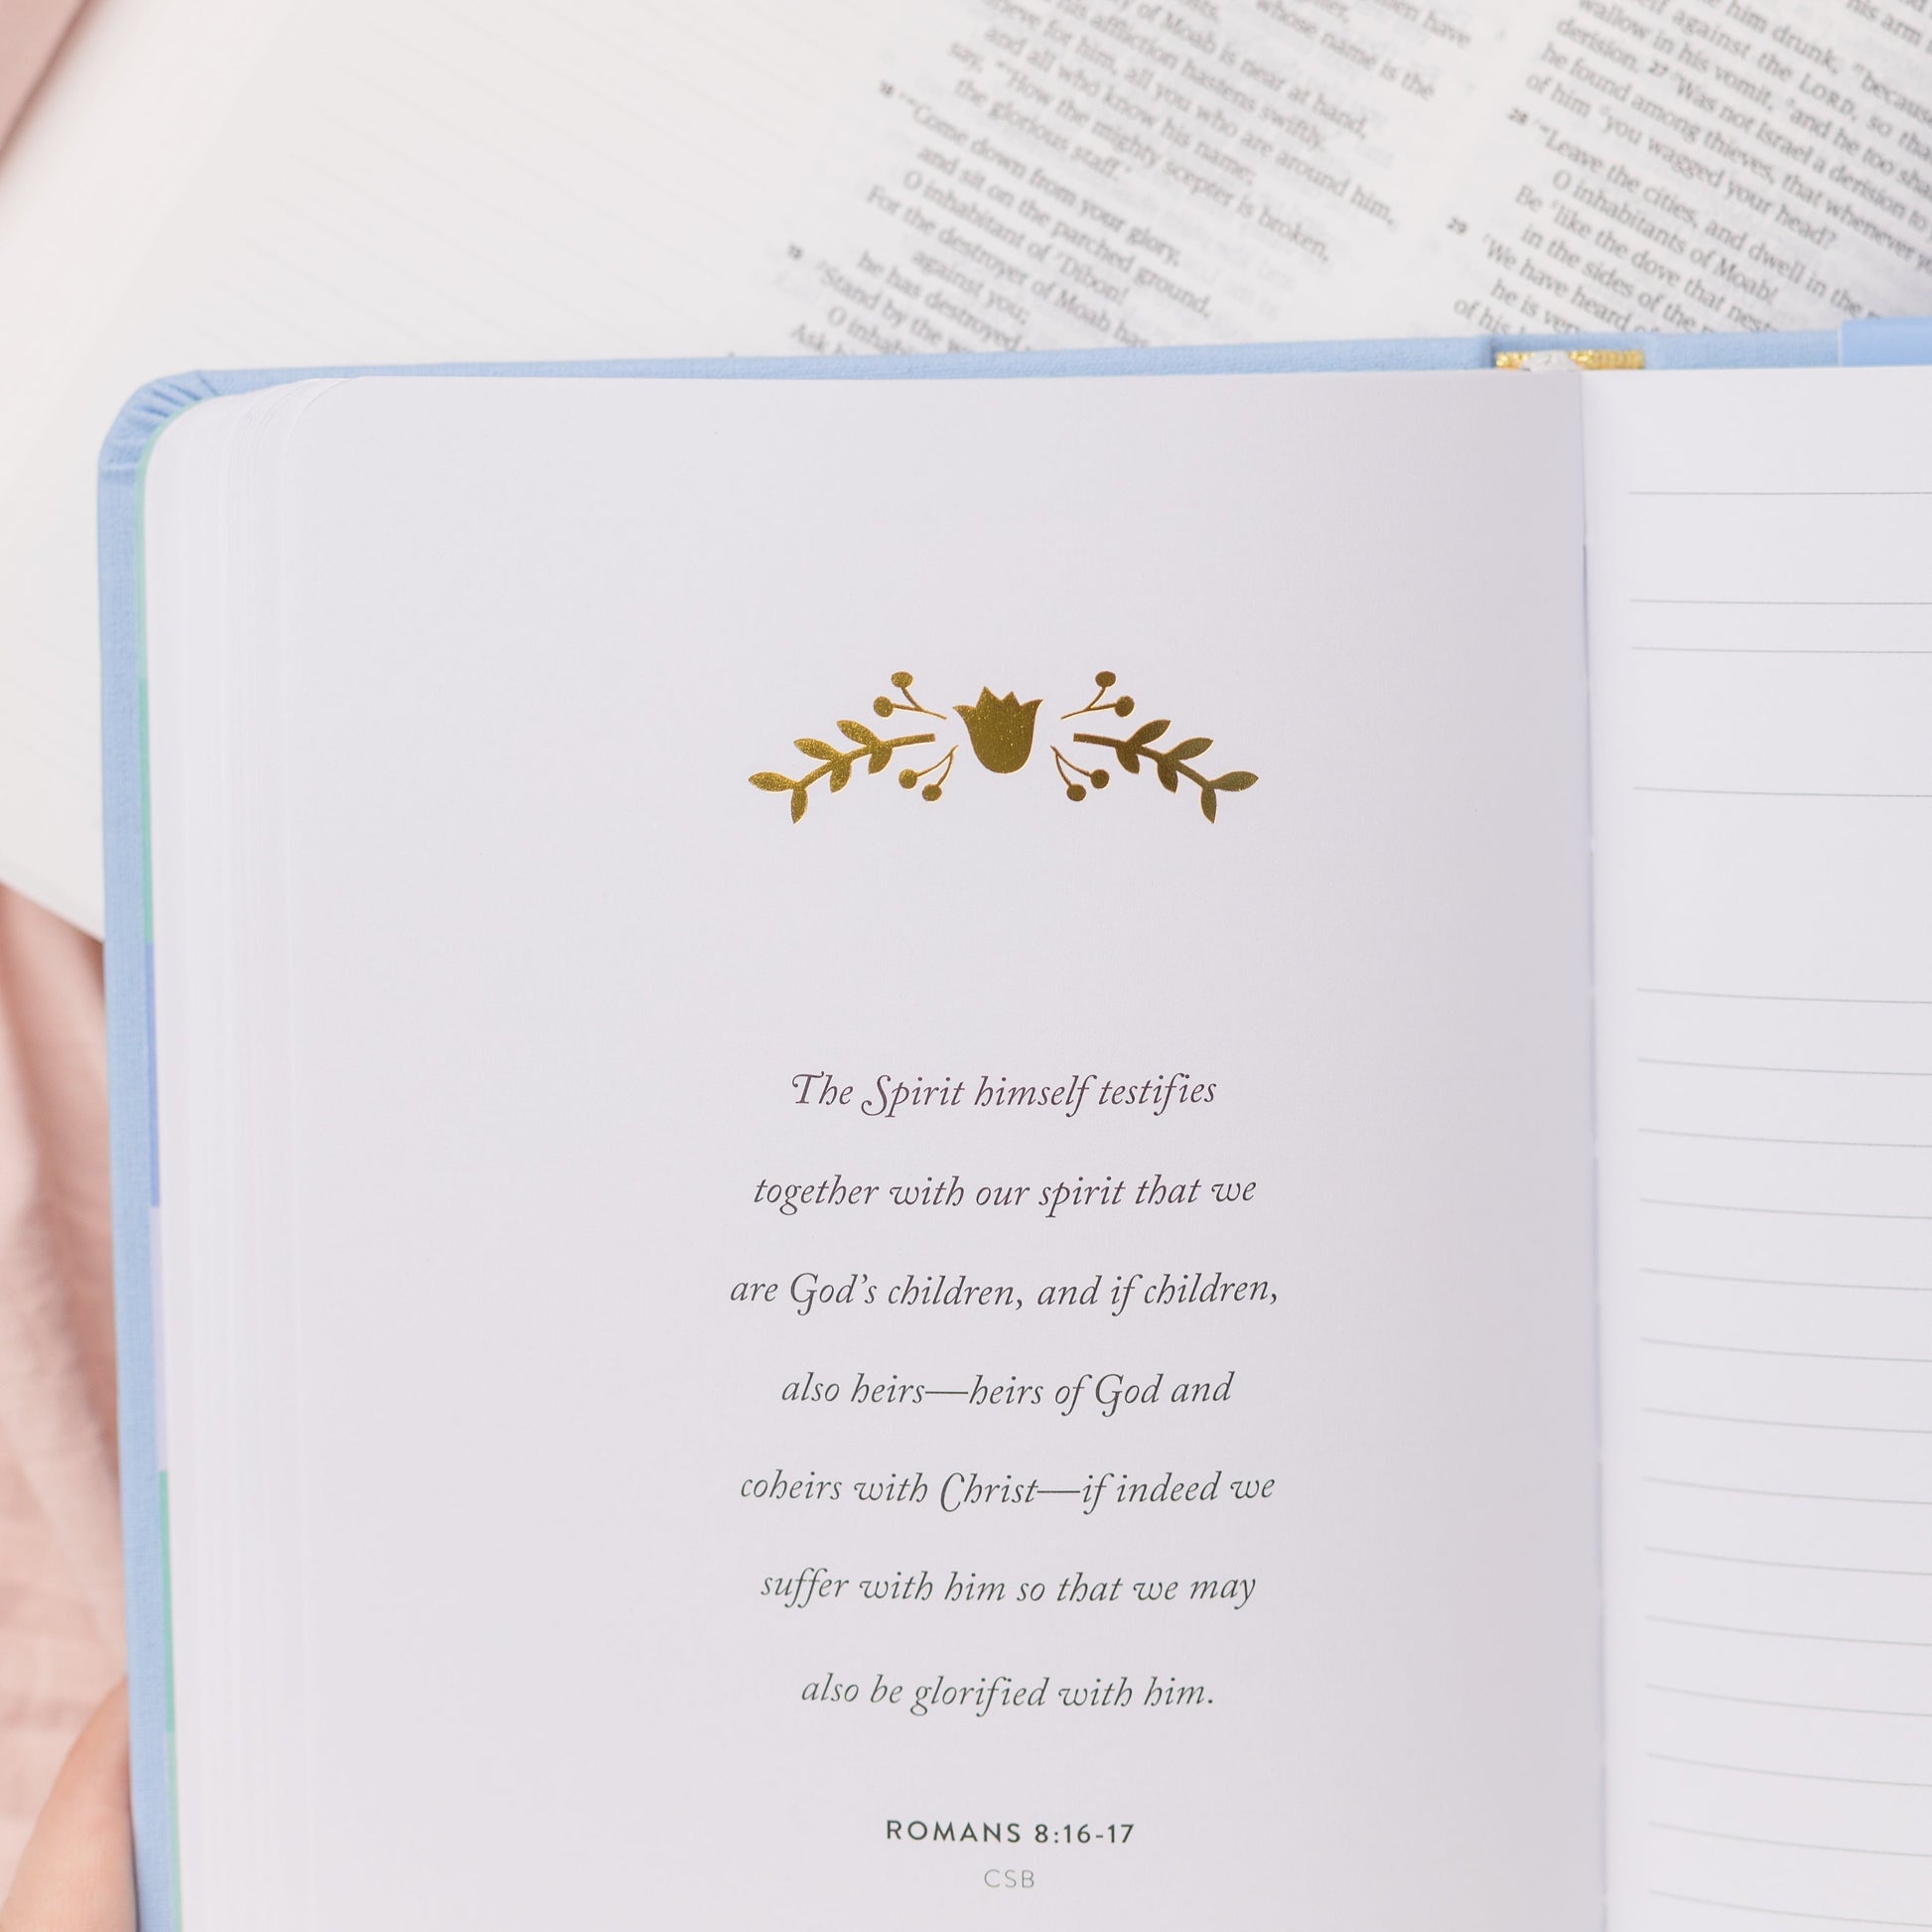 whose name is the
of Moab is near at hand,
his affliction hastens swiftly.
for him, all you who are around him,
and all who know his name;
say, “How the mighty scepter is broken,
the glorious staff.’
18 “Come down from your glory,
and sit on the parched ground,
O inhabitant of Dibon!
For the destroyer of Moab has
against you;
he has destroyed
19 “Stand by the
O
Ask
him drunk, because
against the LORD, so that
wallow in his vomit, and he too
derision. 27 Was not Israel a derision to
he found among thieves, that whenever
of him you wagged your head?
28 “Leave the cities, and dwell in the
O inhabitants of Moab!
Be like the dove that
in the sides of the
29 We have heard of
he is
of his
The Spirit himself testifies
together with our spirit that we
are God’s children, and if children,
also heirs—heirs of God and
coheirs with Christ—if indeed we
suffer with him so that we may
also be glorified with him.
ROMANS 8:16-17
CSB